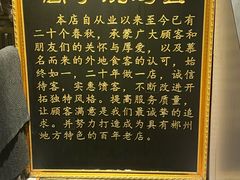 本店自从业以来至今已有
二十个春秋，承蒙广大顾客和
朋友们的关怀与厚爱，以及慕
名而来的外地食客的认可，始
终如一，二十年做一店，诚信
待客，实惠馈客，不断改进开
拓独特风格。提高服务质量，
让顾客满意是我们最诚挚的追
求。并努力打造成为具有郴州
地方特色的百年老店。